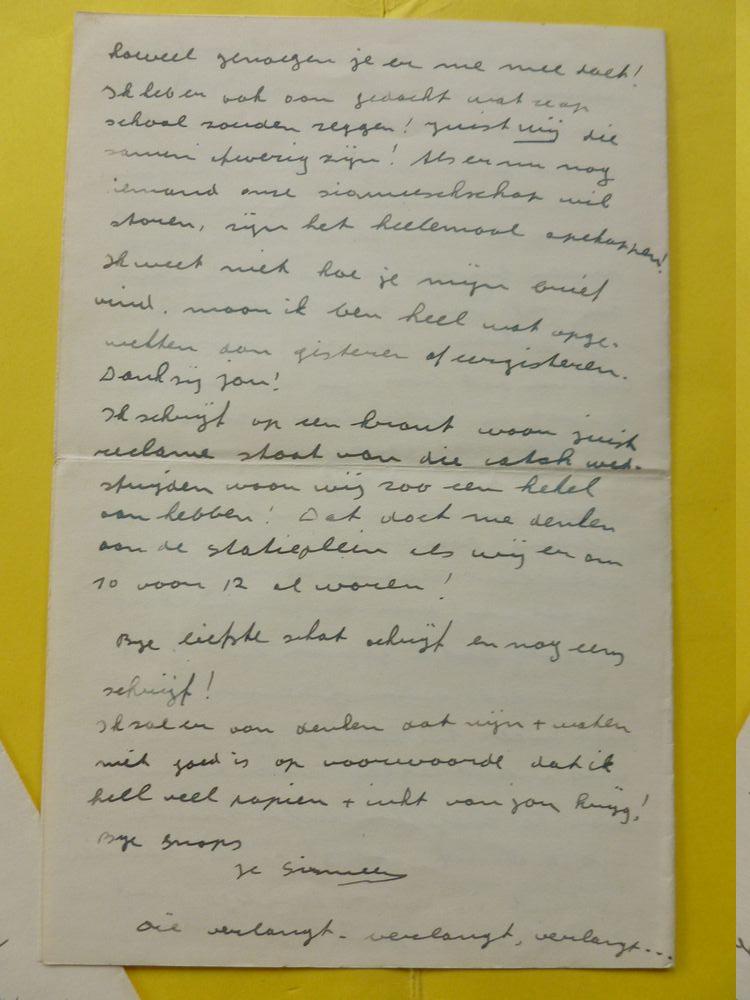 hoeveel genoegen je er me mee doet!
Ik heb er ook aan gedacht wat ze op
school zouden zeggen! Juist wij die
samen afwezig zijn! Als er nu nog
iemand onze wil
storen, zijn het heelemaal
Ik weet niet hoe je mijn brief
vind, maar ik ben heel wat opge-
wekter dan gisteren of eergisteren.
Dank zij jou!
Ik schrijf op een krant waar juist
reclame staat van die catch wed-
strijden waar wij zoo een hekel
aan hebben! Dat doet me denken
aan de statieplein als wij er om
10 voor 12 al waren!
Bye liefste schat schrijf en nog eens
schrijf!
Ik zal er aan denken dat wijn + water
niet goed is op voorwaarde dat ik
heel veel papier + inkt van jou krijg!
Bye Snops
je
die verlangt - verlangt, verlangt...